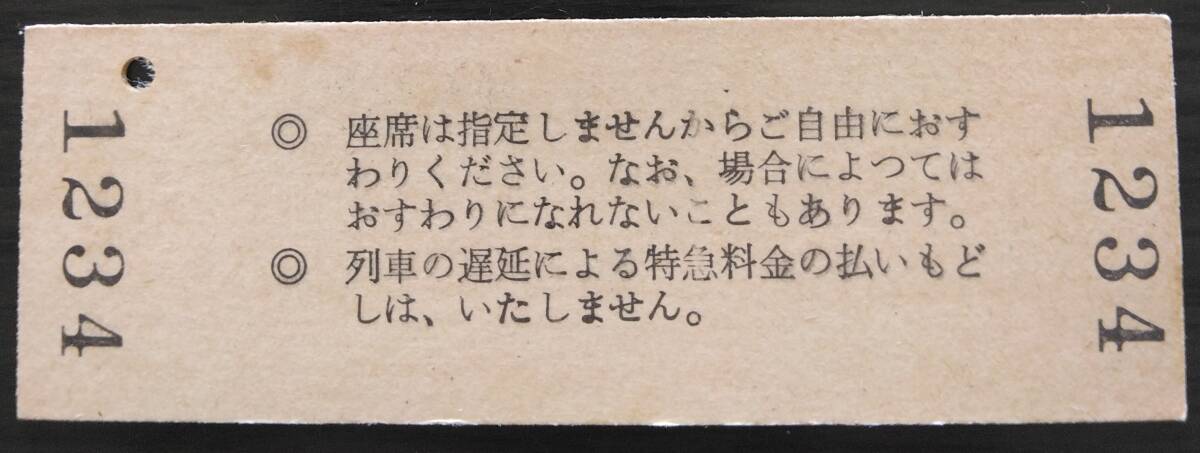 1234
◎ 座席は指定しませんからご自由におす
わりください。なお、場合によつては
おすわりになれないこともあります。
◎ 列車の遅延による特急料金の払いもど
しは、いたしません。
1234